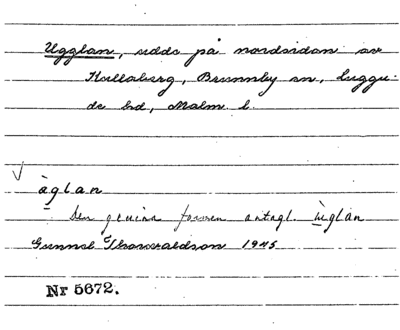 Ugglan, udde på nordsidan av
Kullaberg, Brunnby sn, Luggu-
de hd, Malm. l.
åglan
Den genuina formen antagl. ùglan
Gunnel Thorwaldson 1945
Nr 5672.